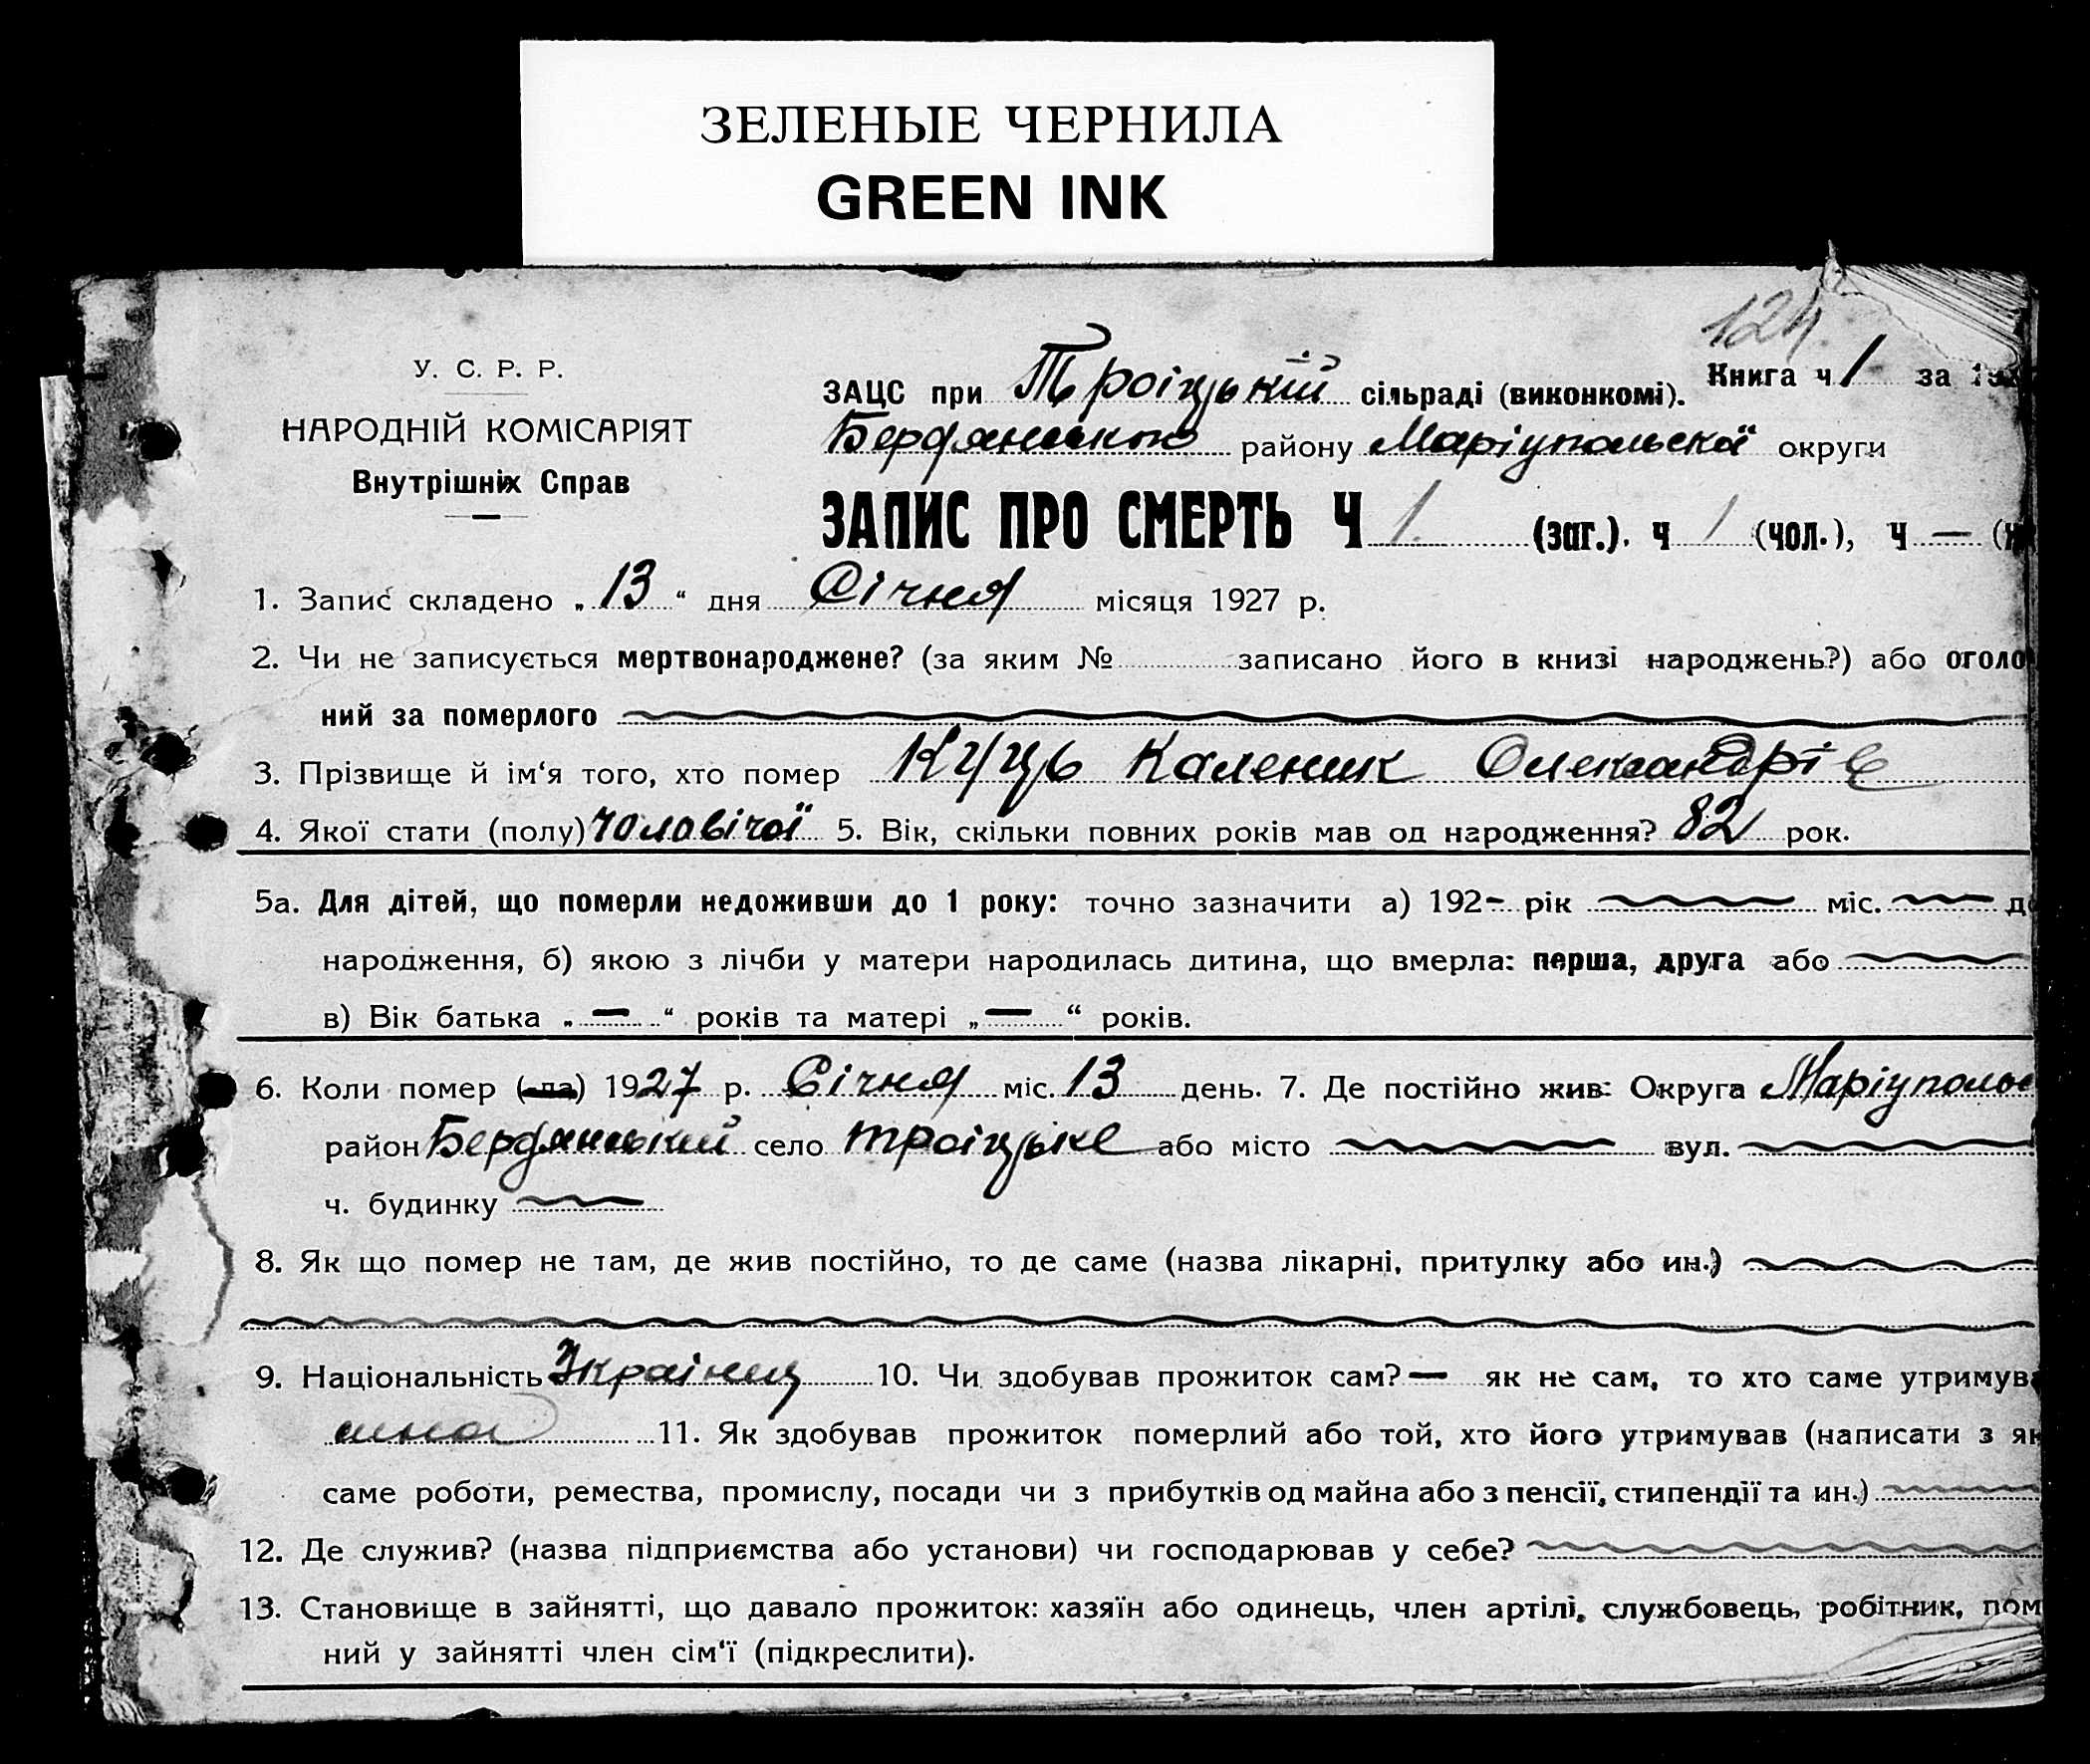 ЗЕЛЕНЫЕ ЧЕРНИЛА
GREEN INK
124
У. С. Р. Р.
НАРОДНІЙ КОМІСАРІЯТ
Внутрішніх Справ
ЗАЦС при Троіцькій сільраді (виконкомі). Книга ч 1 за
Бердянського району Маріупольскої округи
ЗАПИС ПРО СМЕРТЬ Ч 1 (заг.). ч 1 (чол.), ч —
1. Запис складено „13“ дня Січня місяця 1927 р.
2. Чи не записується мертвонароджене? (за яким № записано його в книзі народжень?) або оголо
ний за померлого
3. Прізвище й ім‘я того, хто помер Куць Каленик Олександрів
4. Якої стати (полу) чоловічої 5. Вік, скільки повних років мав од народження? 82 рок.
5а. Для дітей, що померли недоживши до 1 року: точно зазначити а) 192- рік міс. д
народження, б) якою з лічби у матери народилась дитина, що вмерла: перша, друга або
в) Вік батька „—“ років та матері „—“ років.
6. Коли помер (-ла) 1927 р. Січня міс. 13 день. 7. Де постійно жив: Округа Маріуполь
район Бердянський село Троіцьке або місто вул.
ч. будинку
8. Як що помер не там, де жив постійно, то де саме (назва лікарні, притулку або ин.)
9. Національність Украінец 10. Чи здобував прожиток сам? — як не сам, то хто саме утримув
сина 11. Як здобував прожиток померлий або той, хто його утримував (написати з як
саме роботи, ремества, промислу, посади чи з прибутків од майна або з пенсії, стипендії та ин.)
12. Де служив? (назва підприємства або установи) чи господарював у себе?
13. Становище в зайнятті, що давало прожиток: хазяїн або одинець, член артілі, службовець, робітник, пом
ний у зайнятті член сім‘ї (підкреслити).